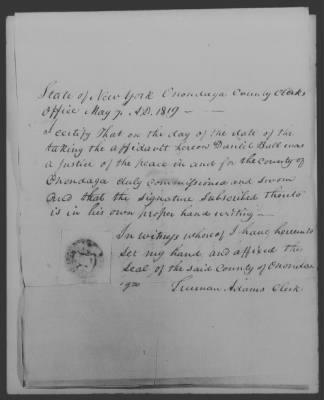 State of New York Onondaga County Clerks
Office May 7. A.D. 1819 —
I certify that on the day of the date of the
taking the affidavit hereon Daniel Ball was
a justice of the peace in and for the county of
Onondaga duly commissioned and sworn
And that the signature subscribed thereto
is in his own proper hand writing —
In witness whereof I have hereunto
set my hand and affixed the
Seal of the said County of Onondaga
Truman Adams Clerk